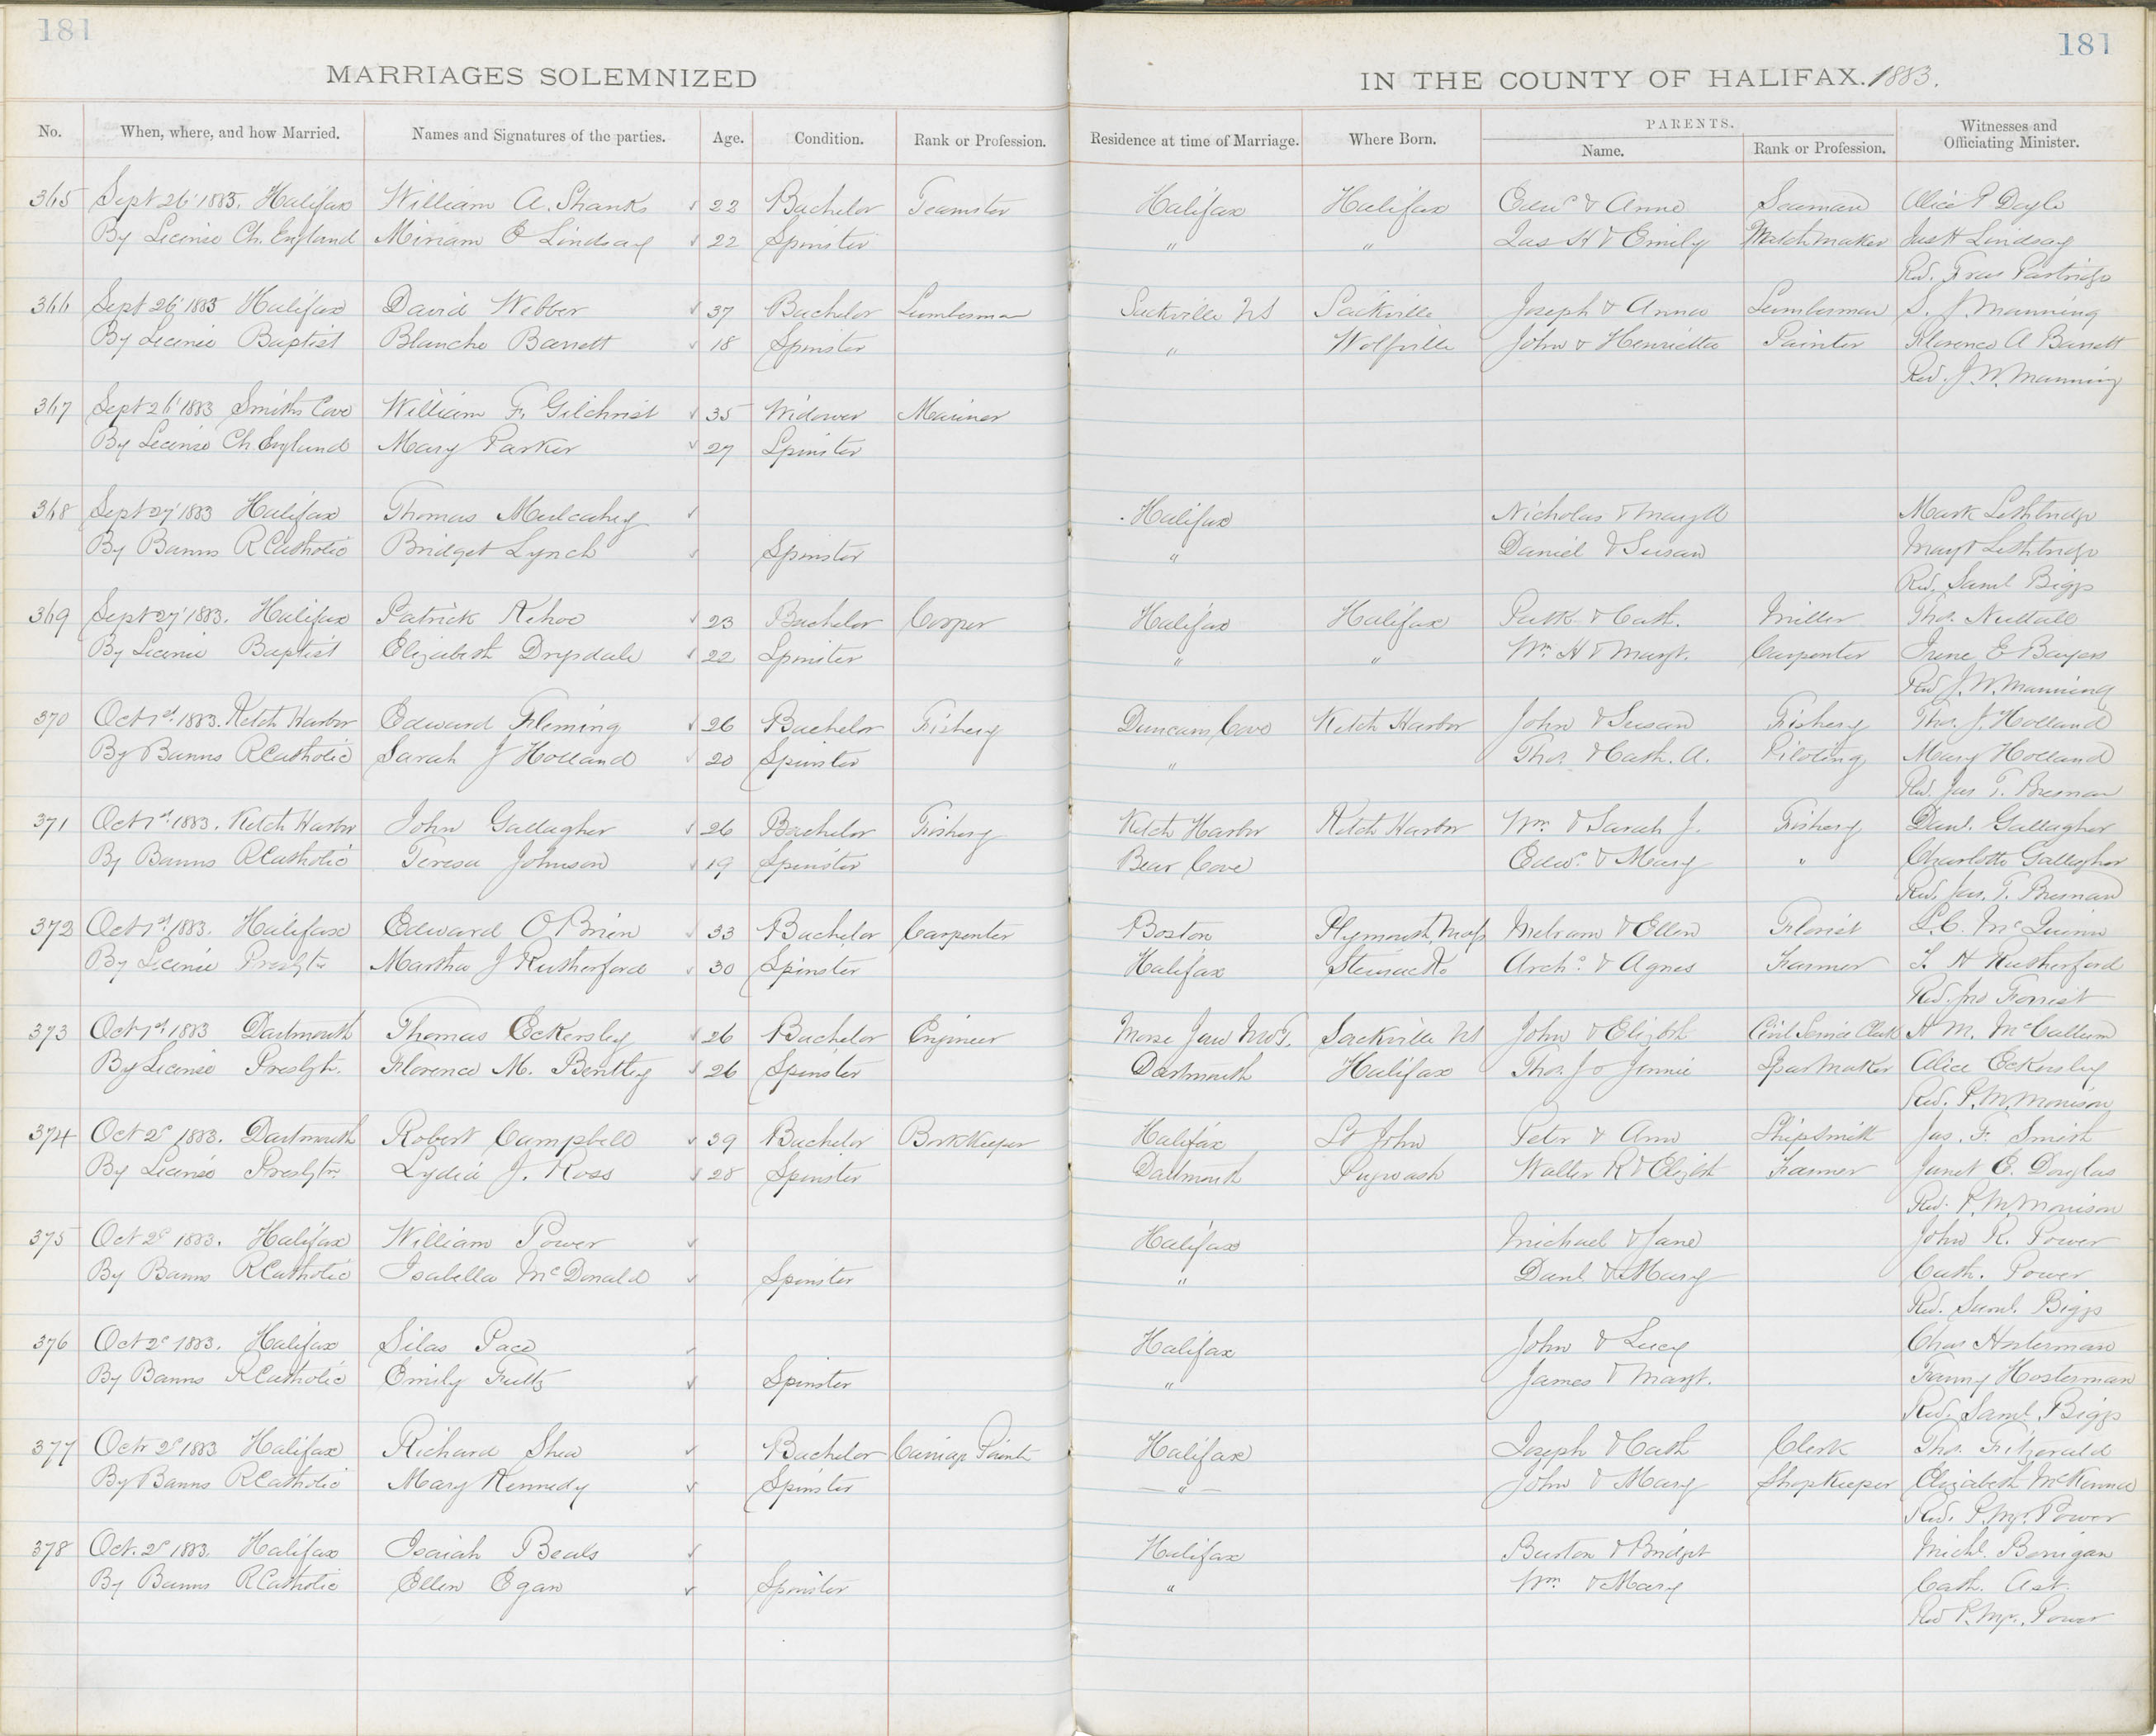 181
181
MARRIAGES SOLEMNIZED
IN THE COUNTY OF HALIFAX. 1883.
No. When, where, and how Married. Names and Signatures of the parties. Age. Condition. Rank or Profession. Residence at time of Marriage. Where Born. PARENTS. Witnesses and
Name. Rank or Profession. Officiating Minister.
365 Sept 26' 1883. Halifax William A. Shanks 22 Bachelor Teamster Halifax Halifax Edwd & Anne Seaman Alice P Doyle
By Licence Ch. England Miriam E Lindsay 22 Spinster " " Jas H & Emily Watchmaker Jas H Lindsay
Rev. Fras Partridge
366 Sept 26' 1883 Halifax David Webber 37 Bachelor Lumberman Sackville NS Sackville Joseph & Anna Lumberman S. J. Manning
By Licence Baptist Blanche Barrett 18 Spinster " Wolfville John & Henrietta Painter Florence A Barrett
Rev. J. W. Manning
367 Sept 26' 1883 Smiths Cove William F. Gilchrist 35 Widower Mariner
By Licence Ch England Mary Parker 27 Spinster
368 Sept 27' 1883 Halifax Thomas Mulcahey Halifax Nicholas & Mary Mark Lethbridge
By Banns R Catholic Bridget Lynch Spinster " Daniel & Susan Mayt Lethbridge
Rev. Saml Biggs
369 Sept 27' 1883. Halifax Patrick Kehoe 23 Bachelor Cooper Halifax Halifax Patk & Cath. Miller Thos. Nuttall
By Licence Baptist Elizabeth Drysdale 22 Spinster " " Wm H & Margt. Carpenter Irene E Bayers
Rev J. W. Manning
370 Oct 1st. 1883. Ketch Harbor Edward Fleming 26 Bachelor Fishery Duncans Cove Ketch Harbor John & Susan Fishery Thos. J. Holland
By Banns RCatholic Sarah J Holland 20 Spinster " Thos. & Cath. A. Piloting Mary Holland
Rev. Jas T. Bresnan
371 Oct 1st. 1883. Ketch Harbor John Gallagher 26 Bachelor Fishery Ketch Harbor Ketch Harbor Wm. & Sarah J. Fishery Danl. Gallagher
By Banns RCatholic Teresa Johnson 19 Spinster Bear Cove Edwd. & Mary " Charlotte Gallagher
Rev. Jas. T. Bresnan
372 Oct 1st. 1883. Halifax Edward O'Brien 33 Bachelor Carpenter Boston Plymouth, Mass & Ellen Florist
By Licence Presbytn Martha J Rutherford 30 Spinster Halifax Stewiacke Archd. & Agnes Farmer H Rutherford
Rev. Jno Forrest
373 Oct 1st. 1883 Dartmouth Thomas Eckersley 26 Bachelor Engineer Moose Jaw NWT. Sackville NS John & Elizbth Civil Service Clerk H M. McCallum
By Licence Presbyt. Florence M. Bentley 26 Spinster Dartmouth Halifax Thos. J & Jennie Sparmaker Alice Eckersley
Rev. P. M. Morrison
374 Oct 2d 1883. Dartmouth Robert Campbell 39 Bachelor Bookkeeper Halifax St John Peter & Ann Shipsmith Jas. F. Smith
By Licence Presbytn. Lydia J. Ross 28 Spinster Dartmouth Pugwash Walter R & Elizbth Farmer Janet E. Douglas
Rev. P. M. Morrison
375 Oct 2d 1883. Halifax William Power Halifax Michael & Jane John R. Power
By Banns RCatholic Isabella McDonald Spinster " Danl & Mary Cath. Power
Rev. Saml. Biggs
376 Oct 2d 1883. Halifax Silas Pace Halifax John & Lucy Chas Hosterman
By Banns RCatholic Emily Fultz Spinster " James & Margt. Fanny Hosterman
Rev. Saml. Biggs
377 Octr 2d 1883 Halifax Richard Shea Bachelor Carriage Painter Halifax Joseph & Cath Clerk Thos. Fitzgerald
By Banns RCatholic Mary Kennedy Spinster — " — John & Mary Shopkeeper Elizabeth McKenna
Rev. P. Mgr. Power
378 Oct. 2d 1883. Halifax Isaiah Beals Halifax Burton & Bridget Michl. Berrigan
By Banns RCatholic Ellen Egan Spinster " Wm & Mary Cath.
Rev P. Mgr. Power